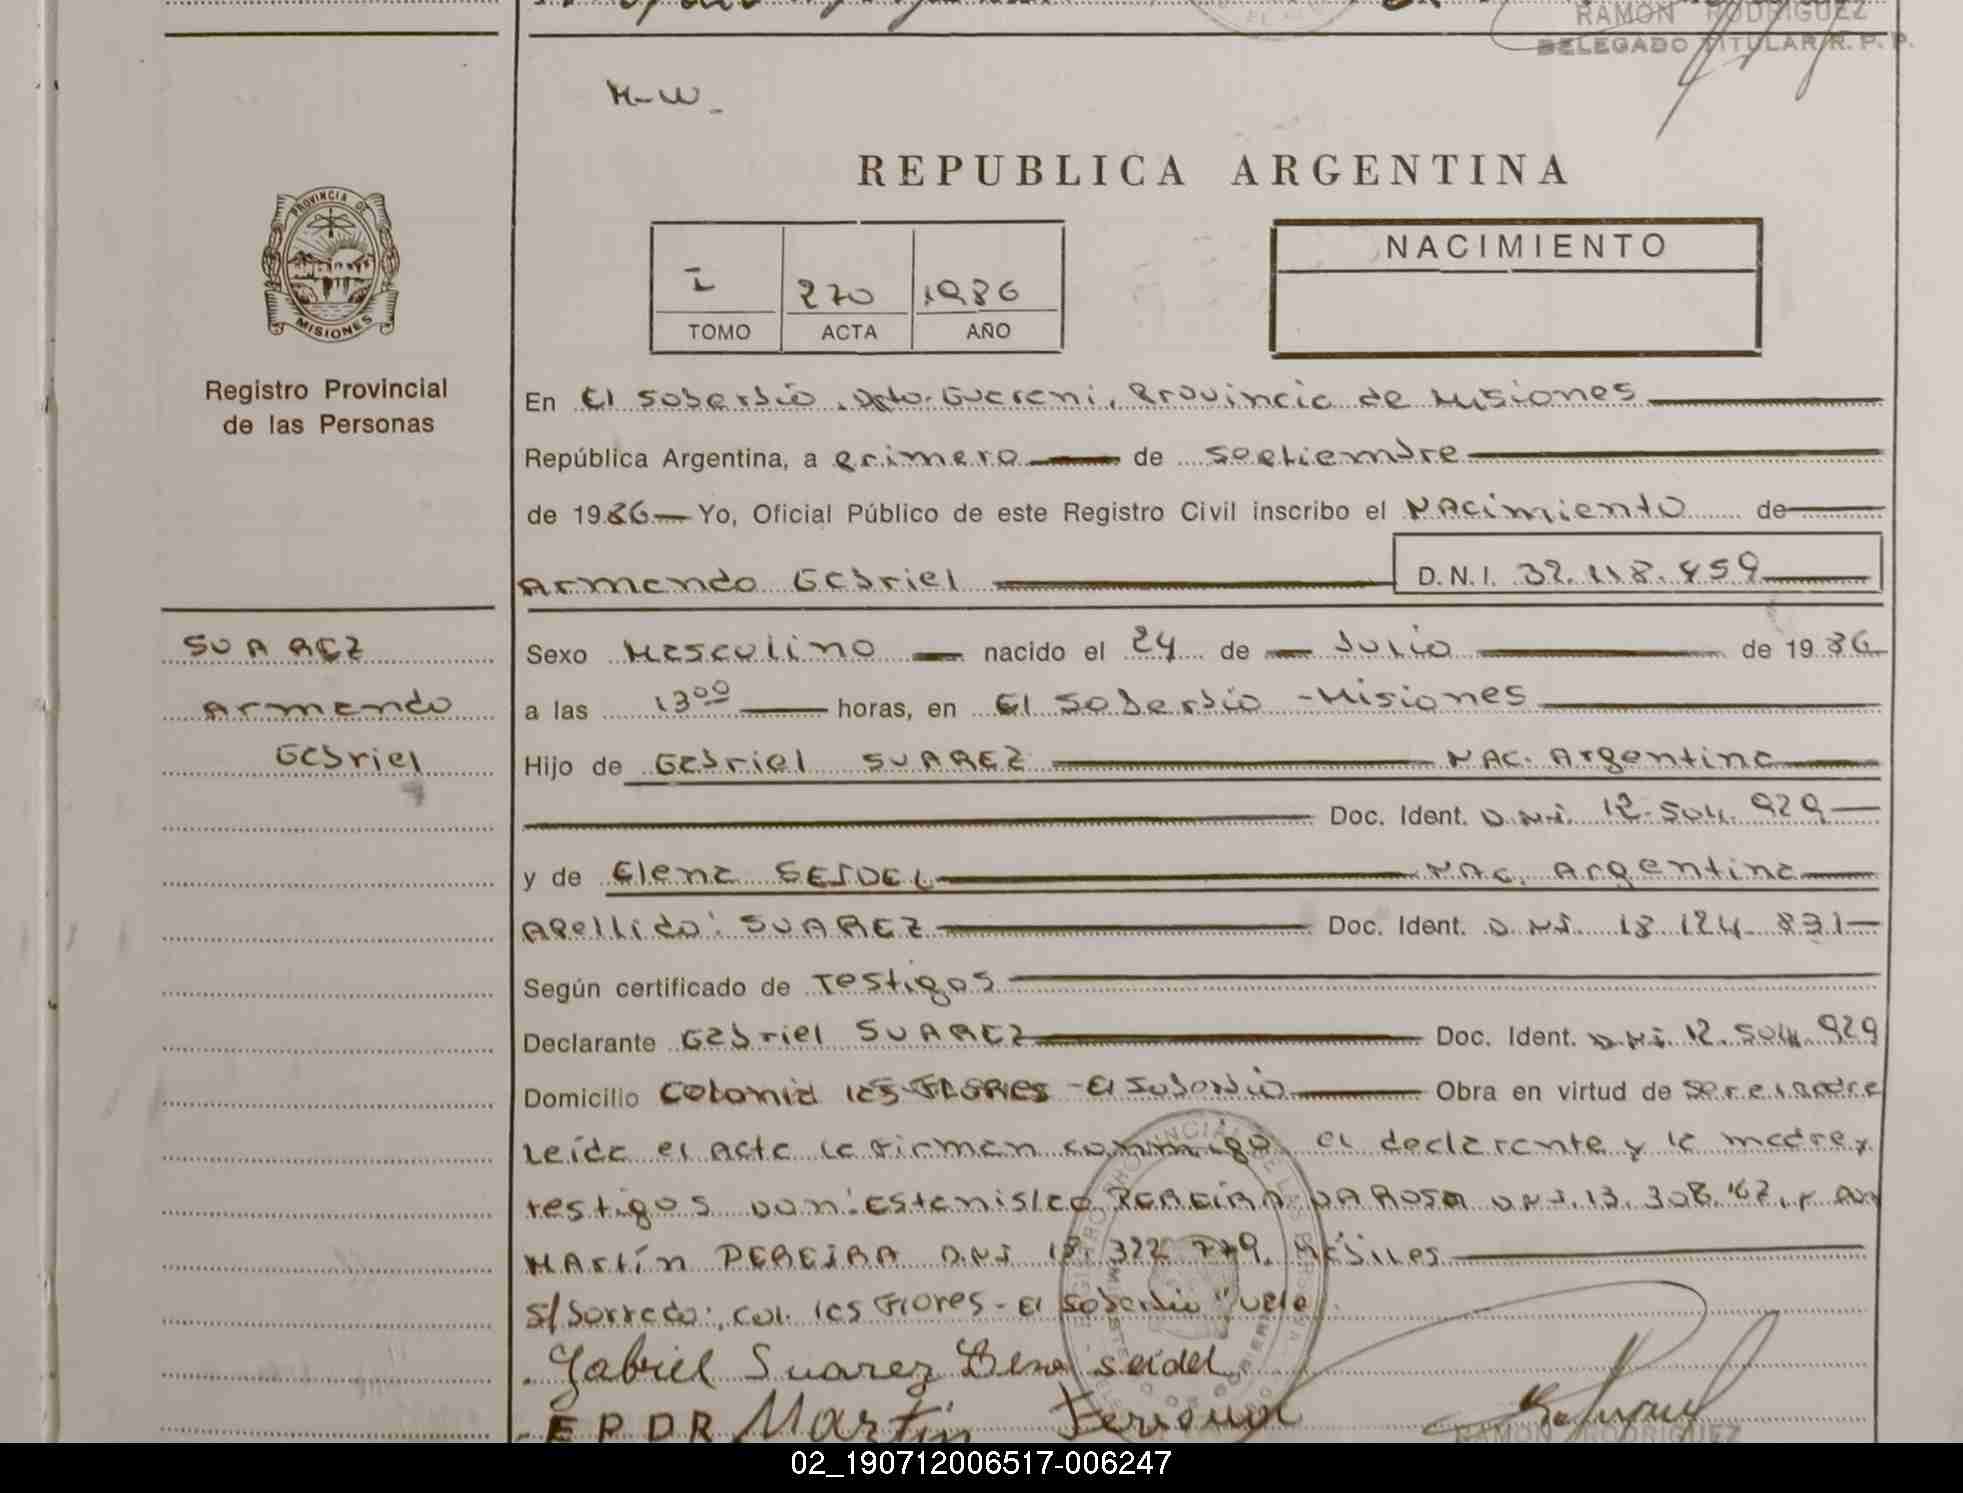 RAMON RODRIGUEZ
DELEGADO TITULAR R. P. P.
M-W_
REPUBLICA ARGENTINA
PROVINCIA DE
MISIONES
NACIMIENTO
I 270 1986
TOMO ACTA AÑO
Registro Provincial
de las Personas
En El Soberbio, Dpto. Guarani, Provincia de Misiones
República Argentina, a primero de Septiembre
de 1986 Yo, Oficial Público de este Registro Civil inscribo el NACimiento de
Armando Gabriel D.N.I. 32.118.459
SUAREZ
Armando
Gabriel
Sexo Masculino nacido el 24 de Julio de 1986
a las 13⁰⁰ horas, en El Soberbio - Misiones
Hijo de Gabriel SUAREZ NAC. Argentina
Doc. Ident. D.N.I. 12.504.929
y de Elena SEIDEL NAC. Argentina
Apellido: SUAREZ Doc. Ident. D.N.I. 18.124.831
Según certificado de Testigos
Declarante Gabriel SUAREZ Doc. Ident. D.N.I. 12.504.929
Domicilio Colonia las FLORES - El Soberbio Obra en virtud de Ser el padre
Leida el Acta la firman conmigo el declarante y la madre y
testigos Don: Estanislao PEREIRA DA ROSA D.N.I. 13.308.
MArtín PEREIRA D.N.I 18.322.779. Hábiles
S/borrado: col. las Flores - El Soberbio "vale
Gabriel Suarez Elena Seidel
E P D R Martin Pereira
RAMON RODRIGUEZ
02_190712006517-006247